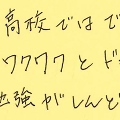 高校ではで
ワクワクとド
勉強がしんど